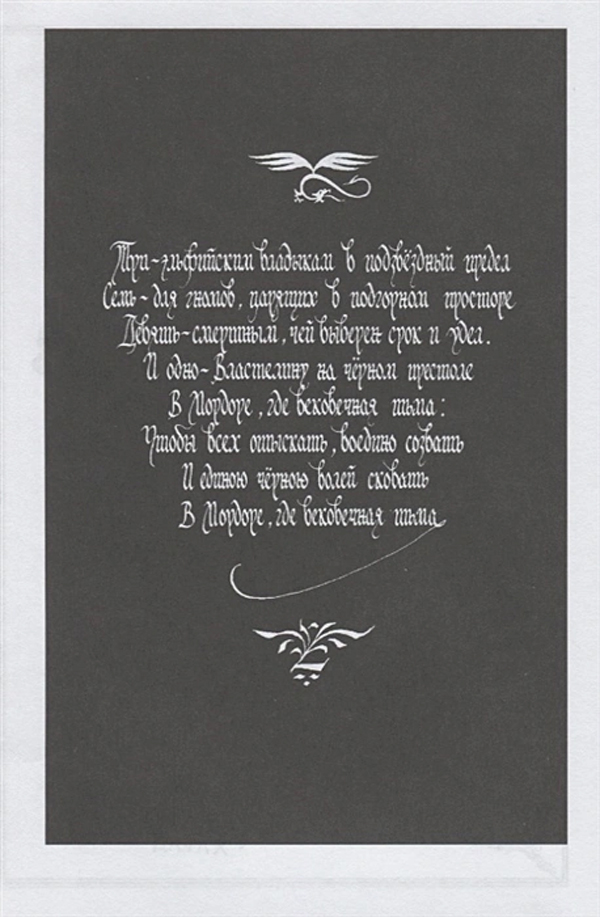 Три - эльфийским владыкам в подзвёздный предел
Семь - для гномов, царящих в подгорном просторе
Девять - смертным, чей выверен срок и удел.
И одно - Властелину на чёрном престоле
В Мордоре, где вековечная тьма:
Чтобы всех отыскать, воедино созвать
И единою чёрною волей сковать
В Мордоре, где вековечная тьма